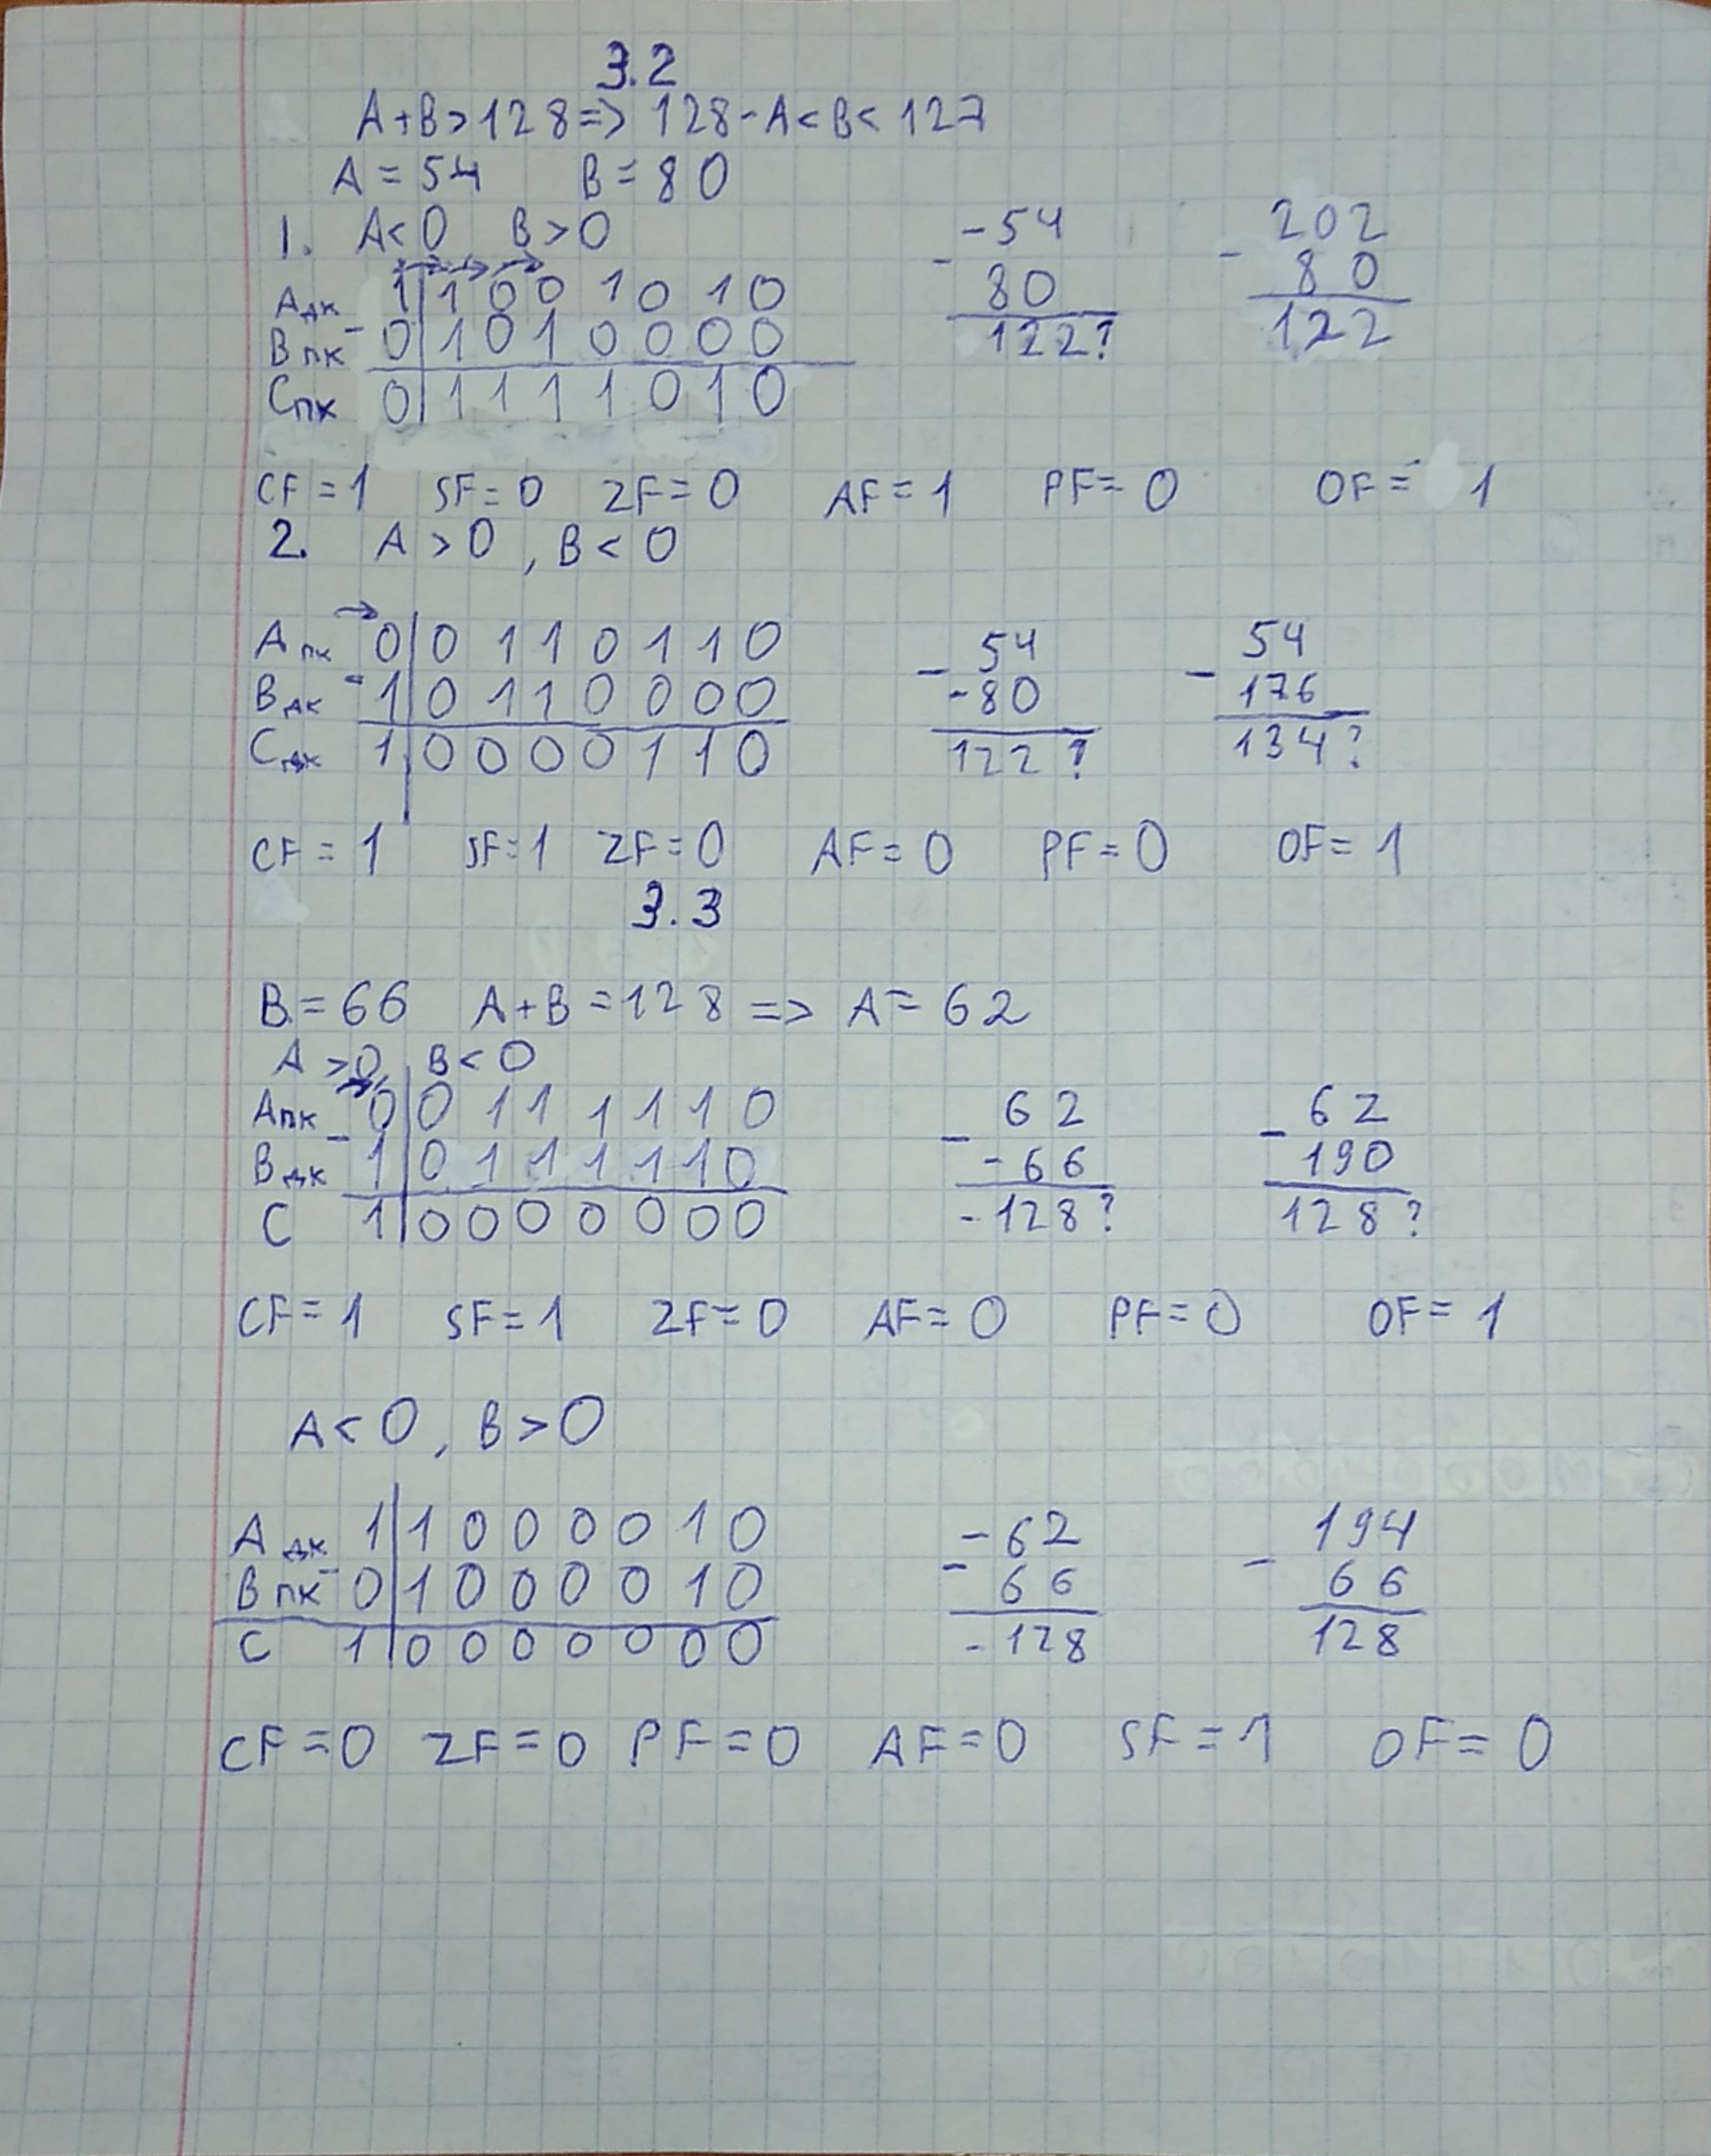 3.2
A+B>128=> 128-A<B<127
A=54 B=80
1. A<0 B>0
Aдк 1|1001010
Bпк 0|1010000
Cпк 0|1111010
-54
- 80
122?
202
- 80
122
CF=1 SF=0 ZF=0 AF=1 PF=0 OF=1
2. A>0, B<0
Aпк 0|0110110
Bдк - 1|0110000
C 1|0000110
54
- -80
122?
54
- 176
134?
CF=1 SF=1 ZF=0 AF=0 PF=0 OF=1
3.3
B=66 A+B=128 => A=62
A>0, B<0
Aпк 0|0111110
Bдк - 1|0111110
C 1|0000000
62
- -66
-128?
62
- 190
128?
CF=1 SF=1 ZF=0 AF=0 PF=0 OF=1
A<0, B>0
Aдк 1|1000010
Bпк - 0|1000010
C 1|0000000
-62
- 66
-128
194
- 66
128
CF=0 ZF=0 PF=0 AF=0 SF=1 OF=0